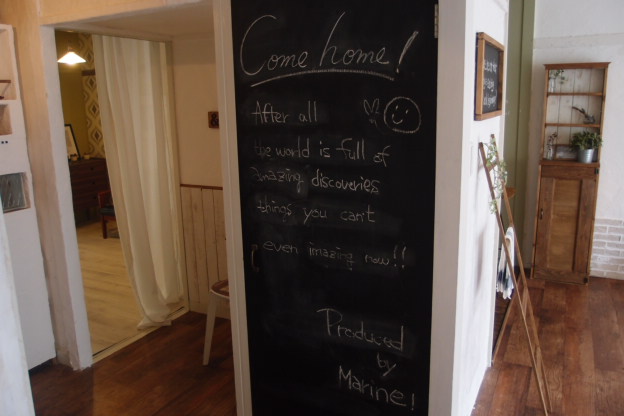 Come home!
After all
the world is full of
amazing discoveries
things you can't
even imazing now!!
Produced
by
Marine!